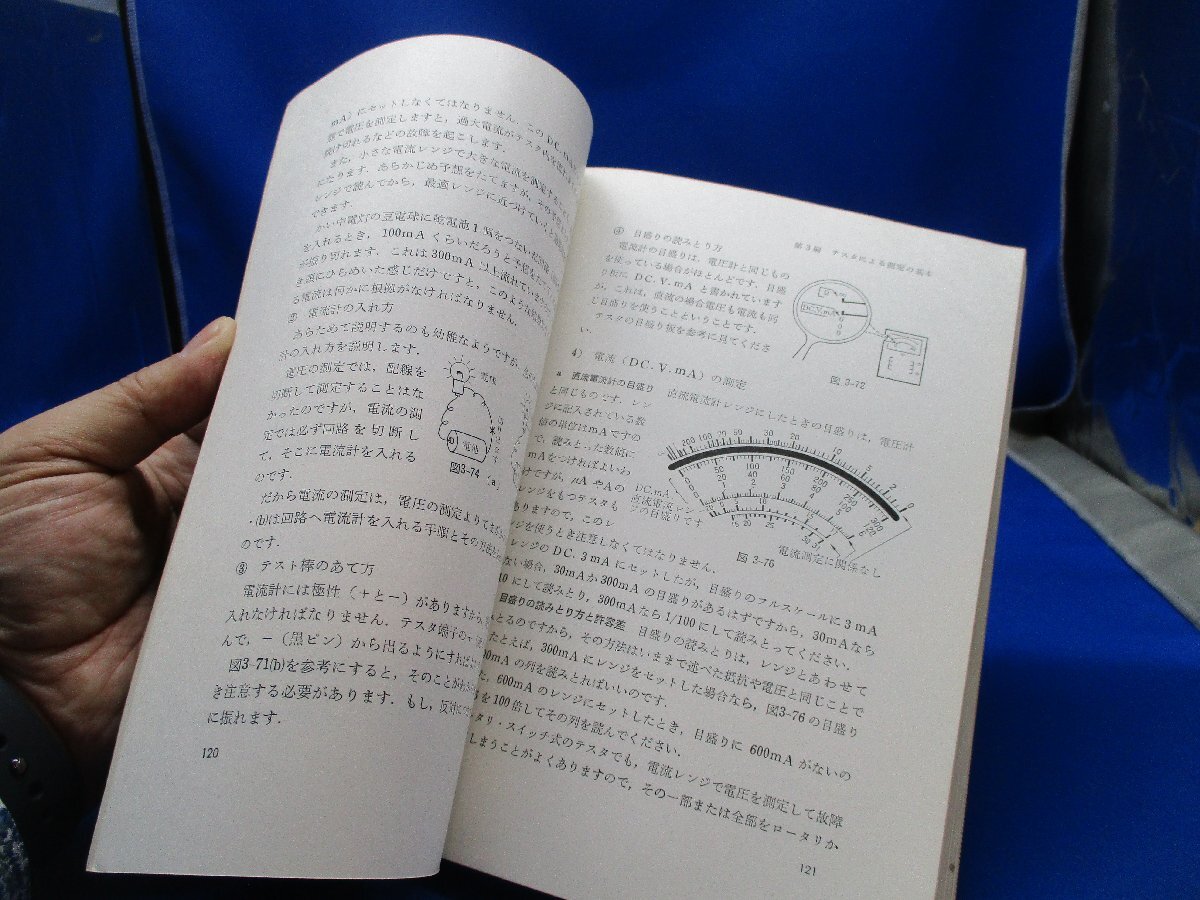 mA）にセットしなくてはなりません．このDC.
態で電圧を測定しますと，過大電流がテスタ内を流れ
焼け切れるなどの故障を起こします．
また，小さな電流レンジで大きな電流を測定する
になります．あらかじめ予想をたてますが，その
レンジで読んでから，最適レンジに近づけていくと
できます．
かい中電灯の豆電球に乾電池1個をつないだ
を入れるとき，100mAくらいだろうと予想をたて
が振り切れます．これは300mA以上流れている
き頭にひらめいた感じだけですと，このような
る電流は何かに根拠がなければなりません．
② 電流計の入れ方
あらためて説明するのも幼稚なようですが，
計の入れ方を説明します．
電圧の測定では，配線を
切断して測定することはな
かったのですが，電流の測
定では必ず回路を切断し
て，そこに電流計を入れる
のです．
電球
電池
図3-74 (a)
だから電流の測定は，電圧の測定より
(b)は回路へ電流計を入れる手順とその
のです．
③ テスト棒のあて方
電流計には極性（＋と－）がありますから，
入れなければなりません．テスタ端子の＋
んで，－（黒ピン）から出るようにすれば
図3-71(b)を参考にすると，そのことが
き注意する必要があります．もし，反対に
に振れます．
120
第3編 テスタによる測定の基本
④ 目盛りの読みとり方
電流計の目盛りは，電圧計と同じもの
を使っている場合がほとんどです．目盛
り板に DC.V.mA と書かれています
が，これは，直流の場合電圧も電流も同
じ目盛りを使うことということです．
テスタの目盛り板を参考に見てくださ
い．
DC.V.mA
図 3-72
4） 電流（DC.V.mA）の測定
a 直流電流計の目盛り 直流電流計レンジにしたときの目盛りは，電圧計
と同じものです．レン
ジに記入されている数
値の単位はmAですの
で，読みとった数値に
mAをつければよいわ
けですが，μAやAの
レンジをもつテスタも
ありますので，このレ
ンジを使うとき注意しなくてはなりません．
DC.mA
直流電流レン
ジの目盛りです
200 100 70 50 30 20 10 5 2 0
50 100 150 200 250 300
図 3-76
電流測定に関係なし
レンジのDC.3mAにセットしたが，目盛りのフルスケールに3mA
ない場合，30mAか300mAの目盛りがあるはずですから，30mAなら
10にして読みとり，300mAなら1/100にして読みとってください．
目盛りの読みとり方と許容差 目盛りの読みとりは，レンジとあわせて
とるのですから，その方法はいままで述べた抵抗や電圧と同じことで
たとえば，300mAにレンジをセットした場合なら，図3-76の目盛り
mAの列を読みとればいいのです．
た，600mAのレンジにセットしたとき，目盛りに600mAがないの
を100倍してその列を読んでください．
タリ・スイッチ式のテスタでも，電流レンジで電圧を測定して故障
しまうことがよくありますので，その一部または全部をロータリか
121